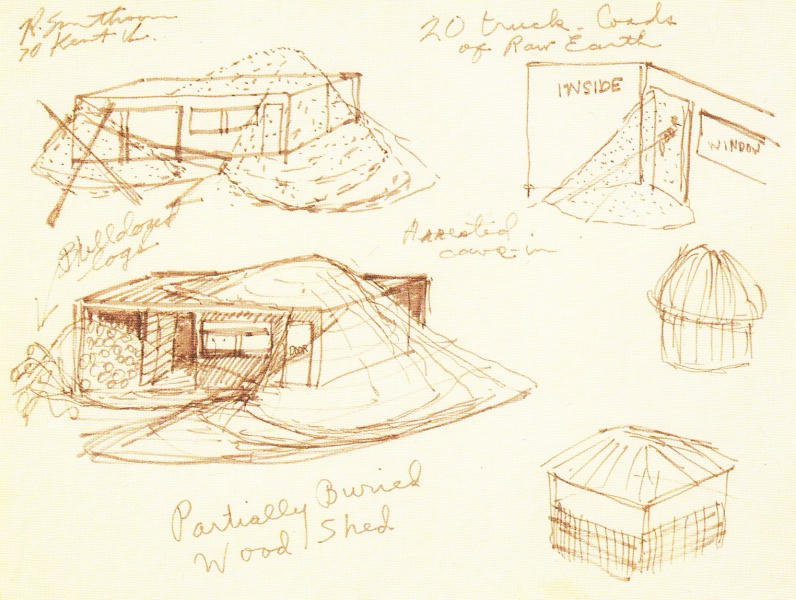 R. Smithson
70 Kent U.
20 truck-Loads
of Raw Earth
INSIDE
DOOR
WINDOW
Bulldozed
logs
Arrested
cave-in
DOOR
Partially Buried
Wood Shed